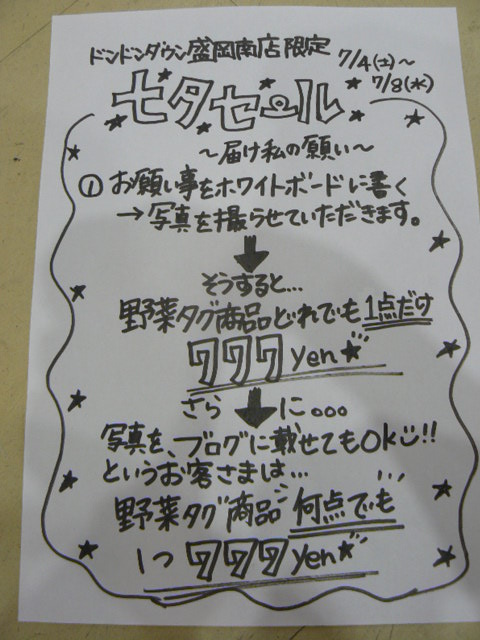 ドンドンダウン盛岡南店限定
7/4(土)~
7/8(水)
七夕セール
~届け私の願い~
① お願い事をホワイトボードに書く
→写真を撮らせていただきます。
そうすると...
野菜タグ商品どれでも1点だけ
777yen
さらに。。。
写真を、ブログに載せてもOK!!
というお客さまは...
野菜タグ商品何点でも
1つ777yen